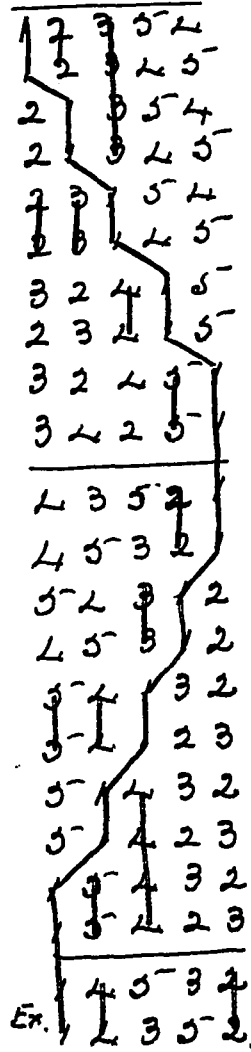 1 2 3 5 4
2 3 4 5
2 3 5 4
2 3 4 5
2 3 5 4
2 3 4 5
3 2 4 5
2 3 4 5
3 2 4 5
3 4 2 5
4 3 5 2
4 5 3 2
5 4 3 2
4 5 3 2
5 4 3 2
5 4 2 3
5 4 3 2
5 4 2 3
5 4 3 2
5 4 2 3
4 5 3 2
Ex. 4 3 5 2